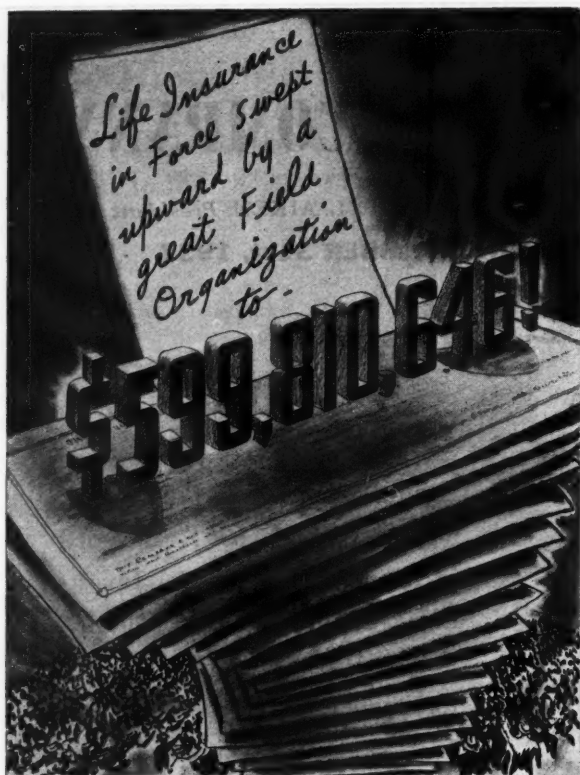 Life Insurance
in Force swept
upward by a
great Field
Organization
to-
$599,810,646!